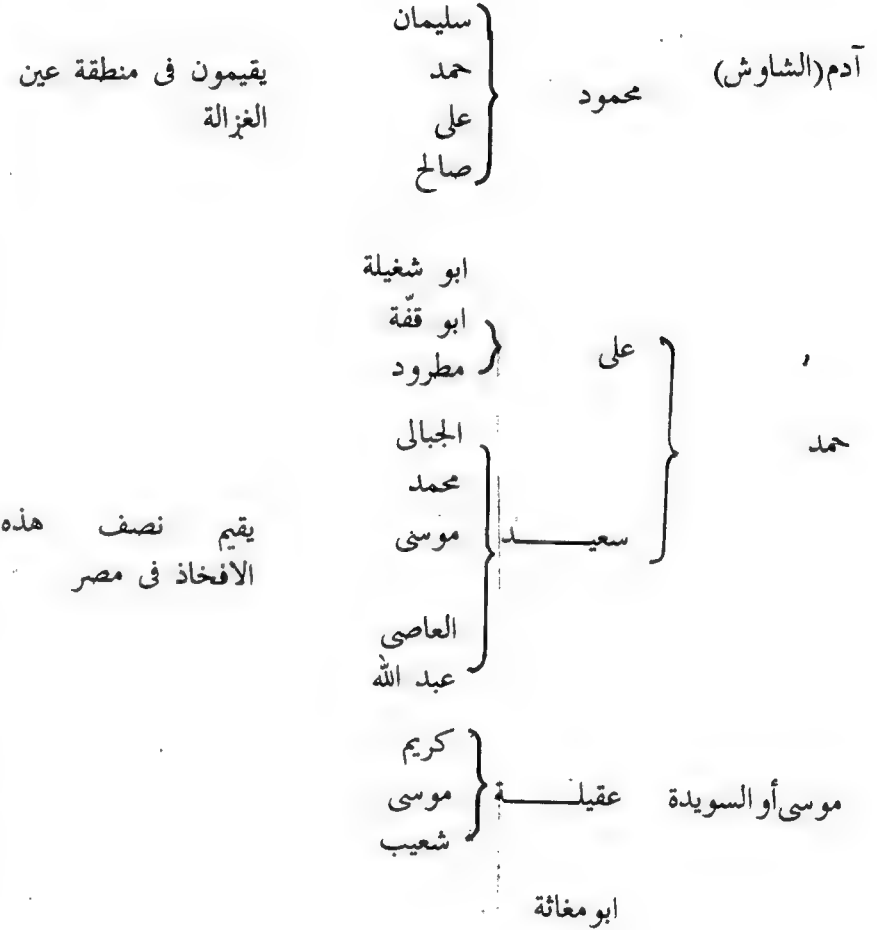 آدم(الشاوش) محمود سليمان
حمد
على
صالح
يقيمون فى منطقة عين
الغزالة
حمد
على
ابو شغيلة
ابو قفّة
مطرود
سعيـــــد
الجبالى
محمد
موسى
العاصى
عبد الله
يقيم نصف هذه
الافخاذ فى مصر
موسى أو السويدة عقيلـــــة
كريم
موسى
شعيب
ابو مغاثة